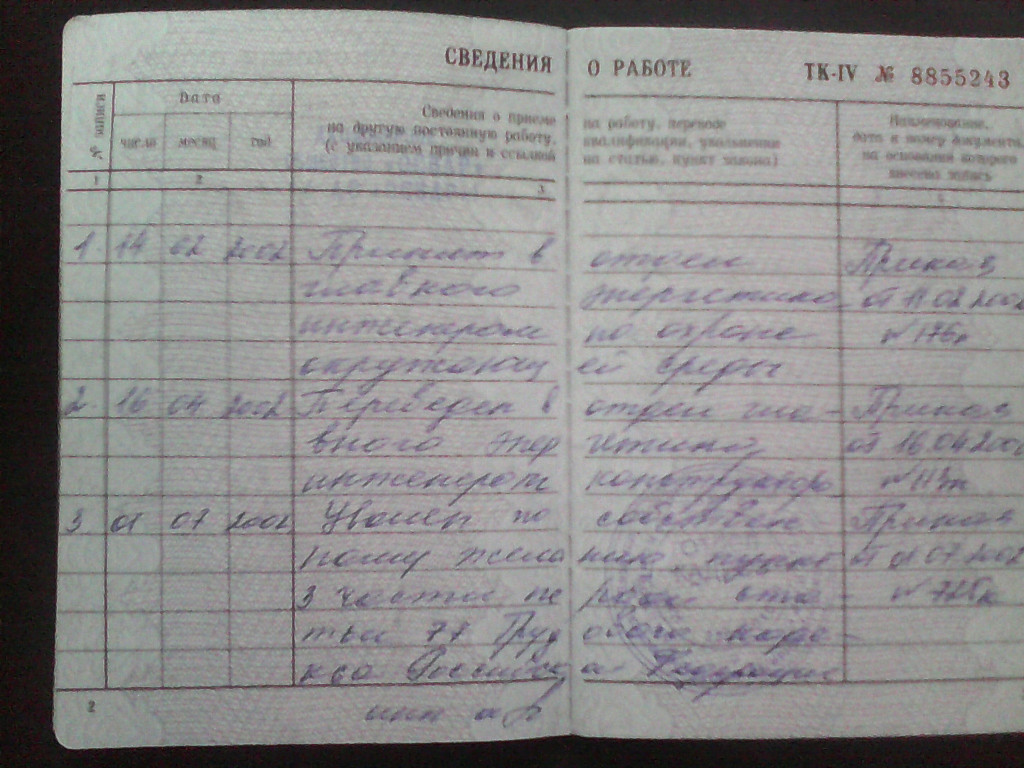 СВЕДЕНИЯ О РАБОТЕ ТК-IV № 8855243
№ записи Дата Сведения о приеме на работу, переводе Наименование,
на другую постоянную работу, квалификации, увольнении дата и номер документа,
число месяц год (с указанием причин и ссылкой на статью, пункт закона) на основании которого
внесена запись
1 2 3 4
1 14 02 2002 Принят в отдел Приказ
главного энергетика от 11.02.2002
инженером по охране № 176к
окружающ ей среды
2 16 04 2002 Переведен в отдел гла- Приказ
вного энер гетика от 16.04.200
инженером конструктором
3 01 07 2002 Уволен по собствен Приказ
ному жела нию пункт от 01.07.2002
3 части пе рвой ста- № 725к
тьи 77 Труд ового коде-
кса Российск а Федерации
2